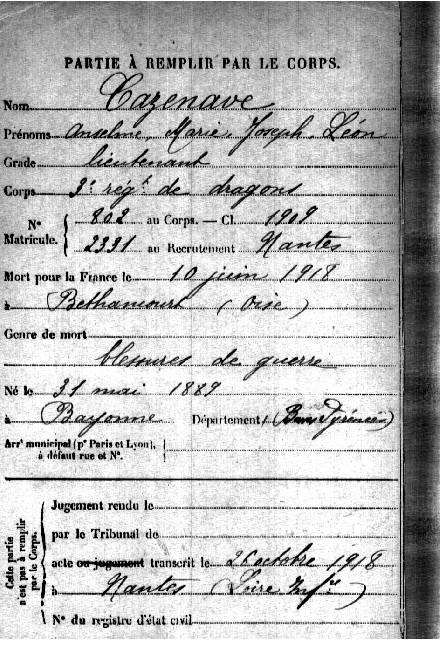 PARTIE À REMPLIR PAR LE CORPS.
Nom Cazenave
Prénoms Anselme, Marie, Joseph, Léon
Grade lieutenant
Corps 3e régt de dragons
N° Matricule. { 802 au Corps. — Cl. 1909
2331 au Recrutement Nantes
Mort pour la France le 10 juin 1918
à Bethancourt (Oise)
Genre de mort
blessures de guerre
Né le 31 mai 1889
à Bayonne Département (Bses Pyrénées)
Arrt municipal (pr Paris et Lyon),
à défaut rue et N°.
Cette partie n'est pas à remplir par le Corps.
Jugement rendu le
par le Tribunal de
acte ou jugement transcrit le 26 octobre 1918
à Nantes (Loire Infre)
N° du registre d'état civil